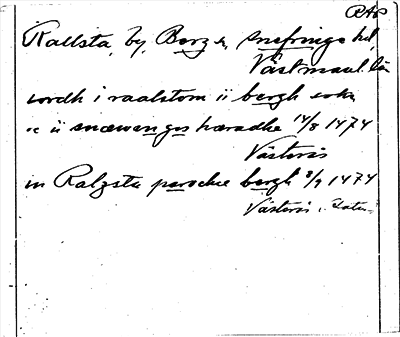 RAP
Rallsta, by, Berg s, Snefringe hd,
Västmanl. län
iordh i raalstom ii bergh sokn
oc ii snæwanges hæradhe 14/8 1474
Västerås
in Ralgsta parochie bergh 8/9 1474
Västerås